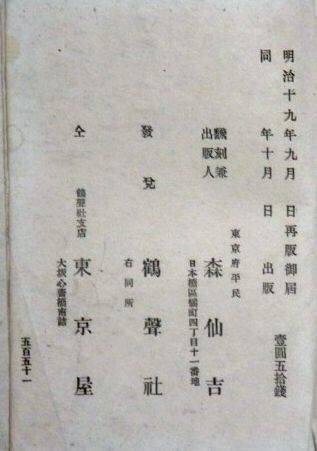 明治十九年九月　日再版御届
同　　年十月　日　出版
壹圓五拾錢
東京府平民
飜刻兼出版人　森仙吉
日本橋區橘町四丁目十一番地
發兌　鶴聲社
右同所
仝　鶴聲社支店　東京屋
大坂心齋橋南詰
五百五十一